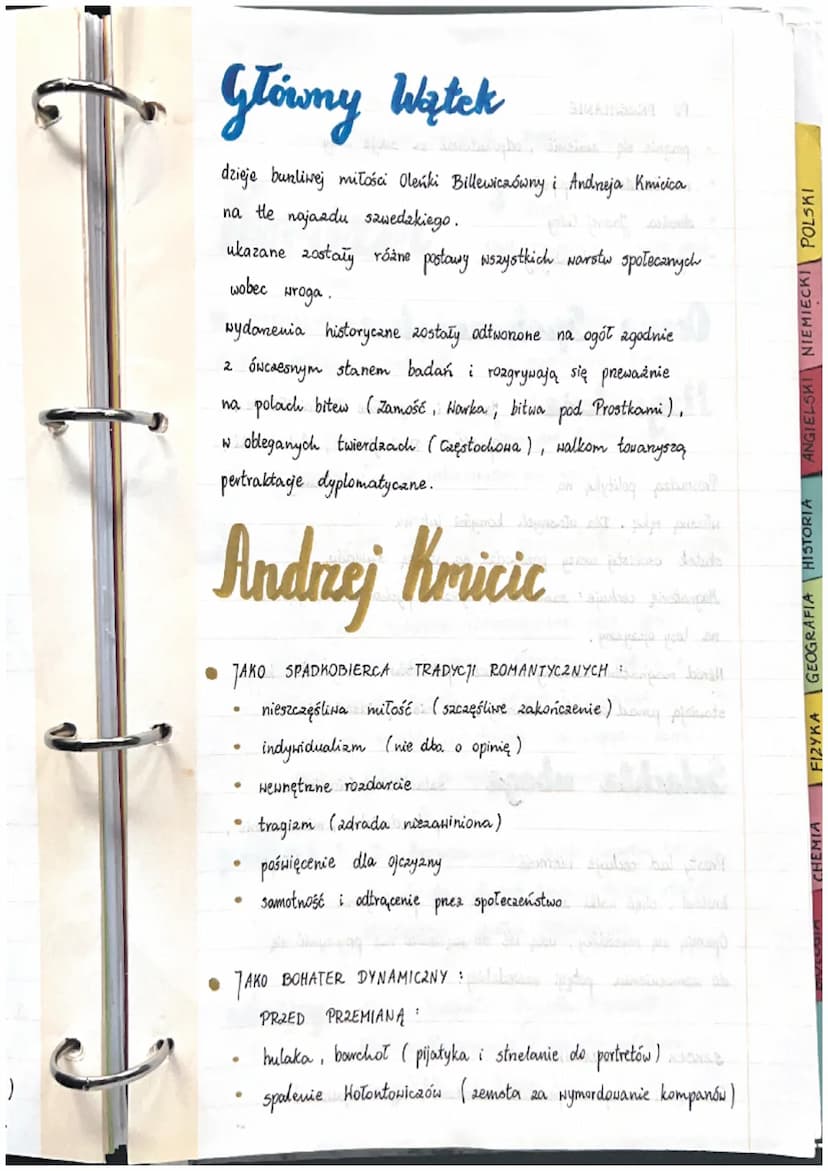 Główny Wątek
dzieje burzliwej miłości Oleńki Billewiczówny i Andrzeja Kmicica
na tle najazdu szwedzkiego.
ukazane zostały różne postawy wszystkich warstw społecznych
wobec wroga.
wydarzenia historyczne zostały odtworzone na ogół zgodnie
z ówczesnym stanem badań i rozgrywają się przeważnie
na polach bitew (Zamość, Warka, bitwa pod Prostkami),
w obleganych twierdzach (Częstochowa), walkom towarzyszą
pertraktacje dyplomatyczne.
Andrzej Kmicic
• JAKO SPADKOBIERCA TRADYCJI ROMANTYCZNYCH:
• nieszczęśliwa miłość (szczęśliwe zakończenie)
• indywidualizm (nie dba o opinię)
• wewnętrzne rozdarcie
• tragizm (zdrada niezawiniona)
• poświęcenie dla ojczyzny
• samotność i odtrącenie przez społeczeństwo
• JAKO BOHATER DYNAMICZNY:
PRZED PRZEMIANĄ:
• hulaka, barchoł (pijatyka i strzelanie do portretów)
• spalenie Wołontowiczów (zemsta za wymordowanie kompanów)
POLSKI
NIEMIECKI
ANGIELSKI
HISTORIA
GEOGRAFIA
FIZYKA
CHEMIA